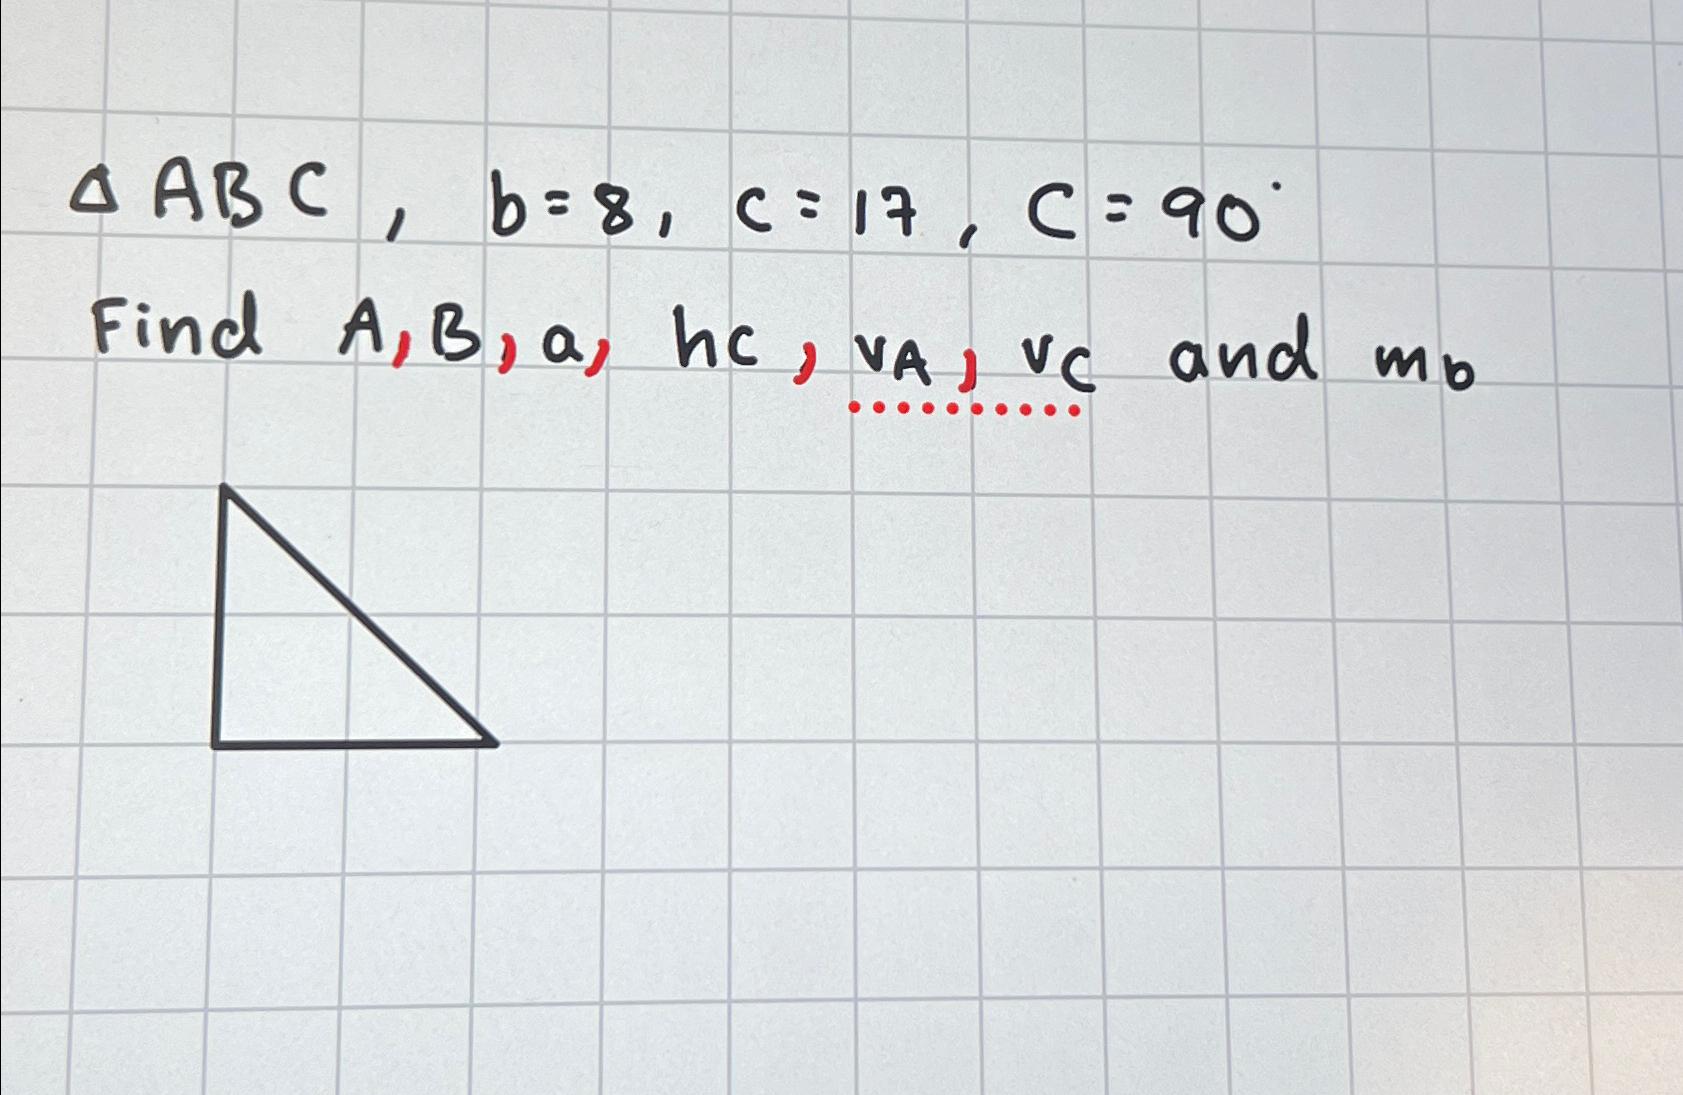 △ ABC, b = 8, c = 17, C = 90°
Find A, B, a, hc, vA, vC and mb